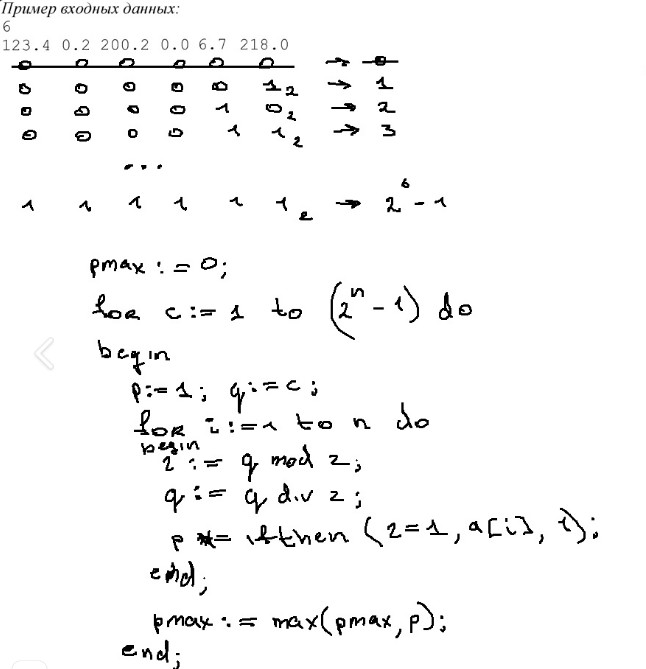 Пример входных данных:
6
123.4 0.2 200.2 0.0 6.7 218.0
0 0 0 0 0 0 → 0
0 0 0 0 0 1₂ → 1
0 0 0 0 1 0₂ → 2
0 0 0 0 1 1₂ → 3
...
1 1 1 1 1 1₂ → 2⁶ - 1
pmax := 0;
for c := 1 to (2ⁿ - 1) do
begin
p := 1; q := c;
for i := 1 to n do
begin
z := q mod 2;
q := q div 2;
p *= ifthen (z=1, a[i], 1);
end;
pmax := max(pmax, p);
end;